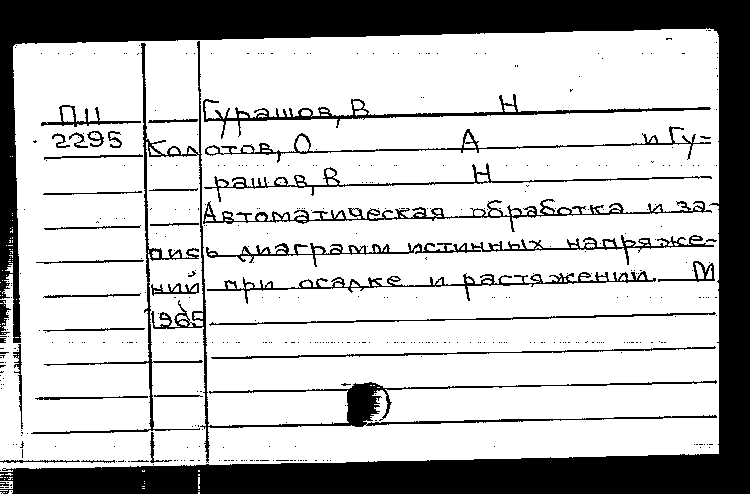 П.П Гурашов, В Н
2295 Колотов, О А и Гу-
рашов, В Н
Автоматическая обработка и за-
пись диаграмм истинных напряже-
ний при осадке и растяжении. М
1965